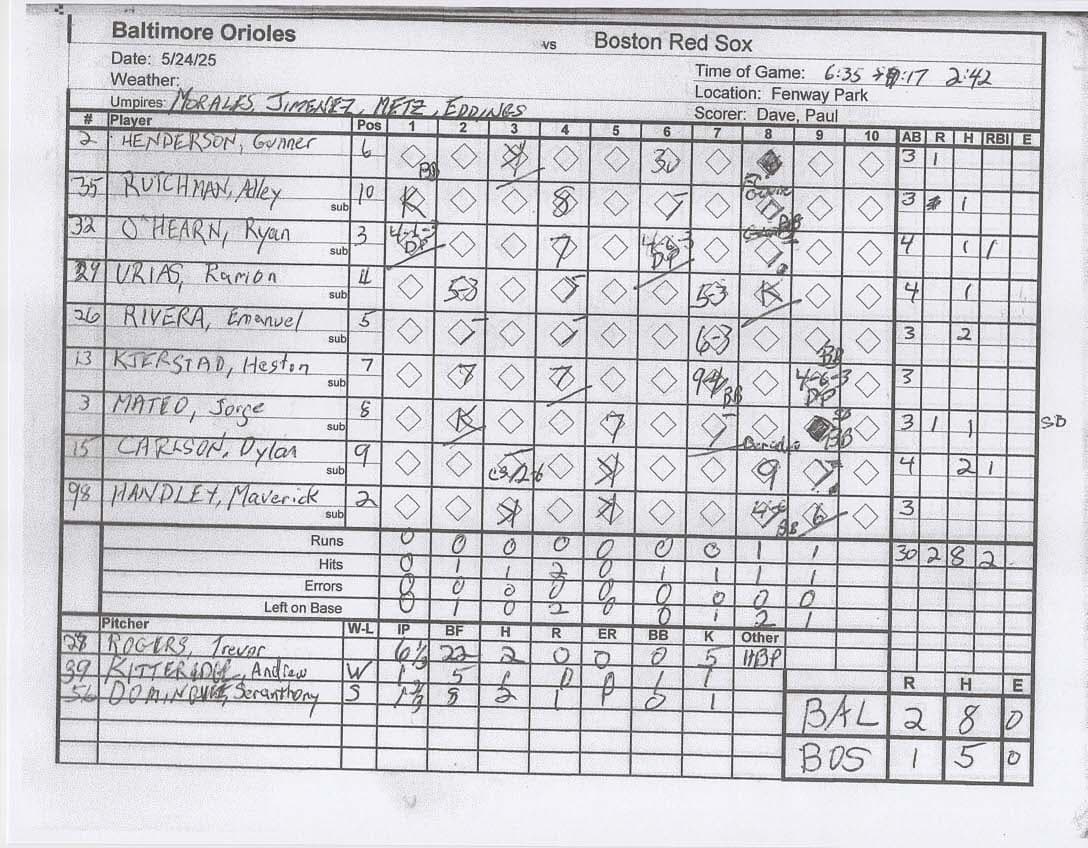 Baltimore Orioles vs Boston Red Sox
Date: 5/24/25
Weather:
Time of Game: 6:35 :17 2:42
Location: Fenway Park
Umpires: MORALES, JIMENEZ, METZ, EDDINGS
Scorer: Dave, Paul
# Player Pos 1 2 3 4 5 6 7 8 9 10 AB R H RBI E
2 HENDERSON, Gunner 6 BB 30 3 1
35 RUTCHMAN, Alley sub 10 K 8 7 BB 3 1
32 O'HEARN, Ryan sub 3 4-6-3 DP 7 4-6-3 DP 7 4 1 1
29 URIAS, Ramon sub 4 53 53 K 4 1
26 RIVERA, Emanuel sub 5 6-3 BB 3 2
13 KJERSTAD, Heston sub 7 7 7 BB 4-6-3 DP 3
3 MATEO, Jorge sub 8 K 7 SB BB 3 1 1 SB
15 CARLSON, Dylan sub 9 K 9 7 4 2 1
98 HANDLEY, Maverick sub 2 K K BB 6 3
Runs 0 0 0 0 0 0 0 1 1 30 2 8 2
Hits 0 1 1 2 0 1 1 1 1
Errors 0 0 0 0 0 0 0 0 0
Left on Base 0 1 0 2 0 0 1 2 1
Pitcher W-L IP BF H R ER BB K Other
28 ROGERS, Trevor 6 1/3 22 2 0 0 0 5 HBP
39 KITTERIDGE, Andrew W 1 5 1 0 0 1 1
56 Seranthony S 1 2/3 8 2 1 0 1
R H E
BAL 2 8 0
BOS 1 5 0